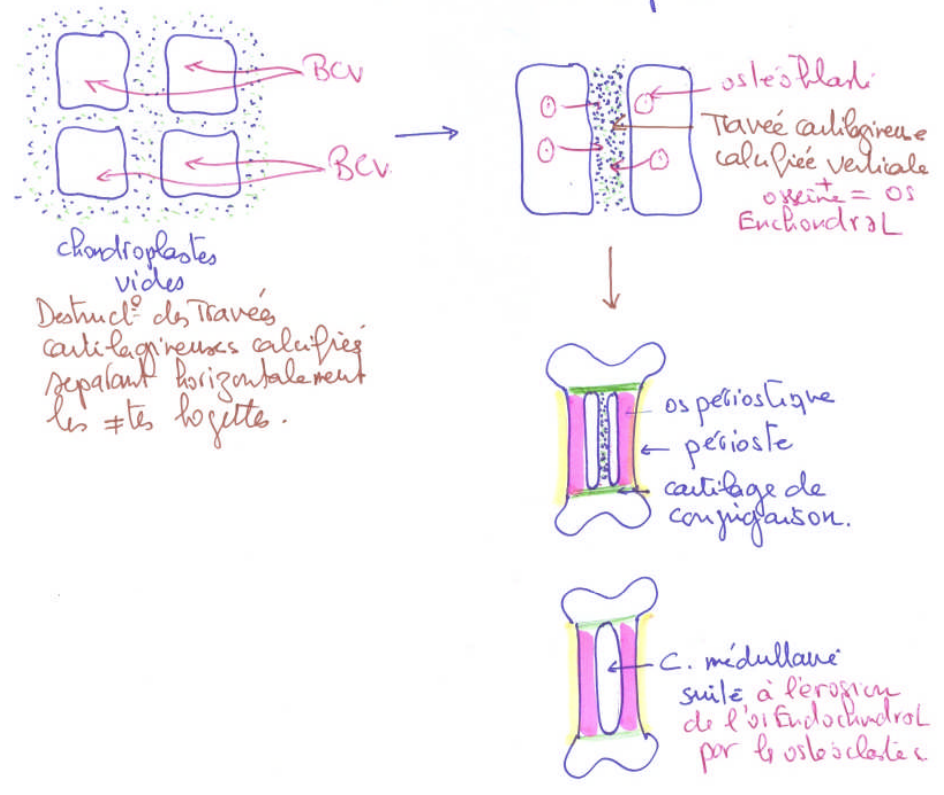 BCV
BCV
chondroplastes
vides
Destruct° des Travées
cartilagineuses calcifiées
séparant horizontalement
les ≠tes logettes.
ostéoblaste
Travée cartilagineuse
calcifiée verticale
+
osseine = os
EnchondraL
os périostique
périoste
cartilage de
conjugaison.
C. médullaire
suite à l'érosion
de l'os EndochondraL
par les ostéoclastes